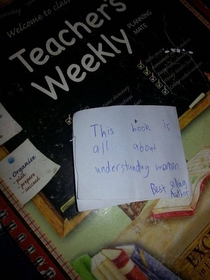 Welcome to class
Teacher's
Weekly
PLANNING
MATE
This book is
all about
understanding women
Best selling
Author
- Organize